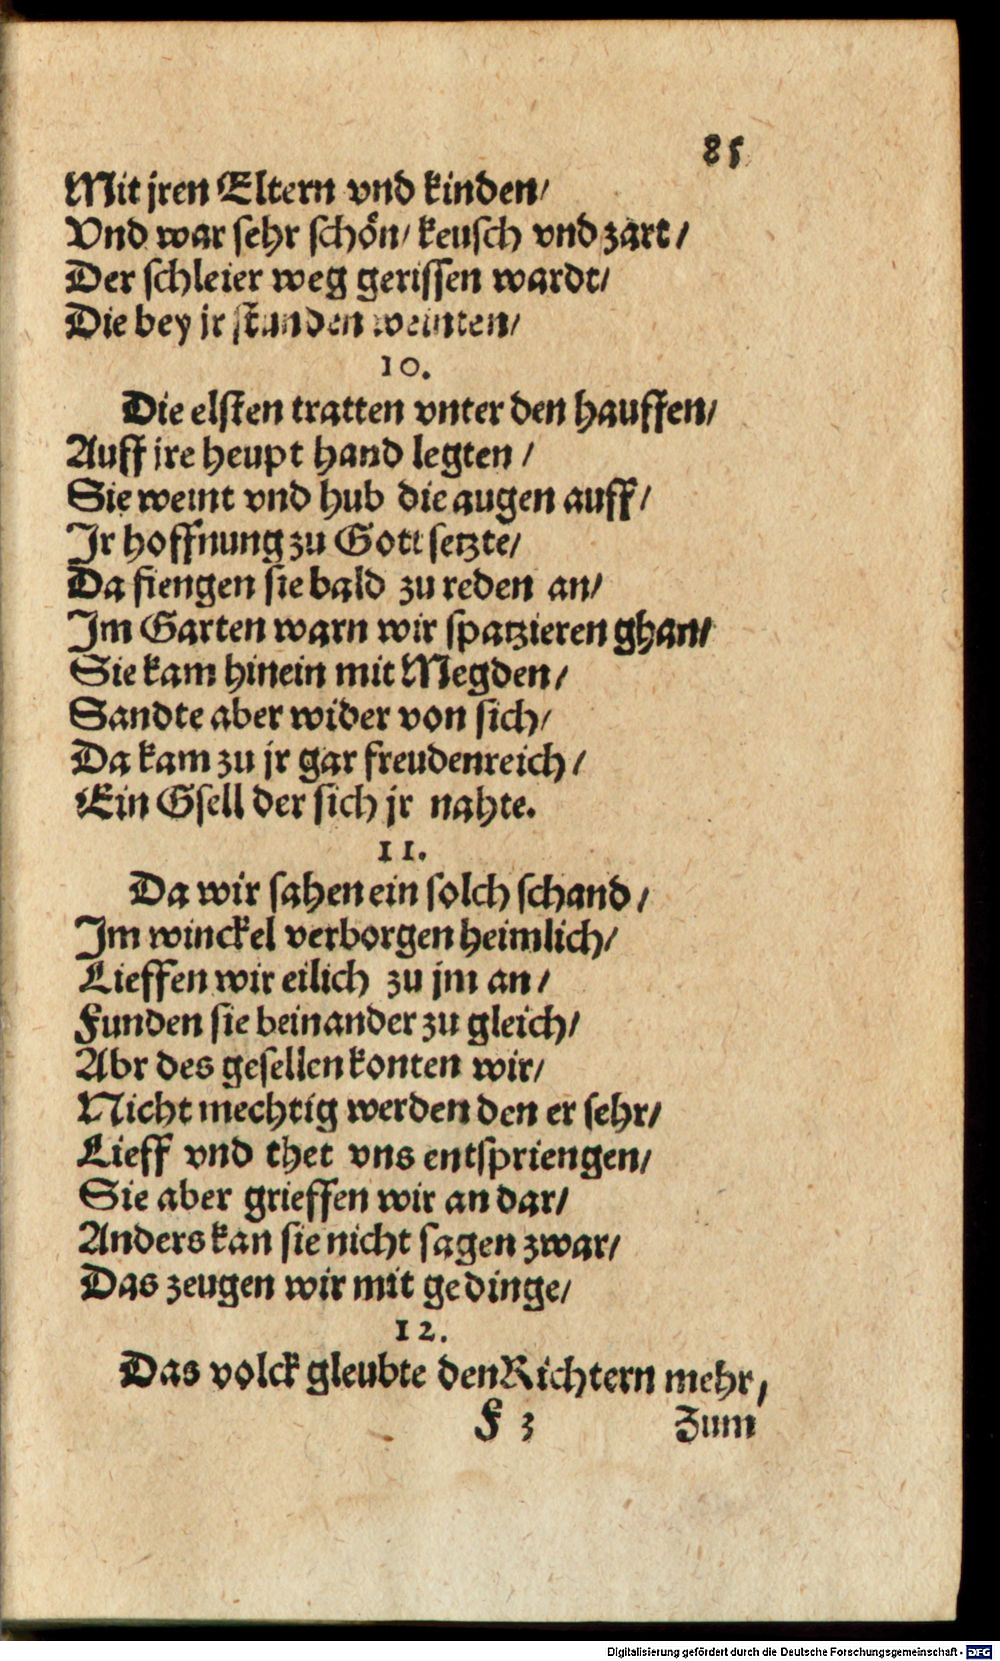 85
Mit jren Eltern vnd kinden/
Vnd war sehr schön/ keusch vnd zart/
Der schleier weg gerissen wardt/
Die bey jr stunden weinten/
10.
Die elsten tratten vnter den hauffen/
Auff jre heupt hand legten /
Sie weint vnd hub die augen auff/
Jr hoffnung zu Gott setzte/
Da fiengen sie bald zu reden an/
Im Garten warn wir spatzieren ghan/
Sie kam hinein mit Megden/
Sandte aber wider von sich/
Da kam zu jr gar freudenreich/
Ein Gsell der sich jr nahte.
11.
Da wir sahen ein solch schand/
Im winckel verborgen heimlich/
Lieffen wir eilich zu jm an/
Funden sie beinander zu gleich/
Abr des gesellen konten wir/
Nicht mechtig werden den er sehr/
Lieff vnd thet vns entspriengen/
Sie aber grieffen wir an dar/
Anders kan sie nicht sagen zwar/
Das zeugen wir mit gedinge/
12.
Das volck gleubte den Richtern mehr,
F 3 Zum
Digitalisierung gefördert durch die Deutsche Forschungsgemeinschaft - DFG